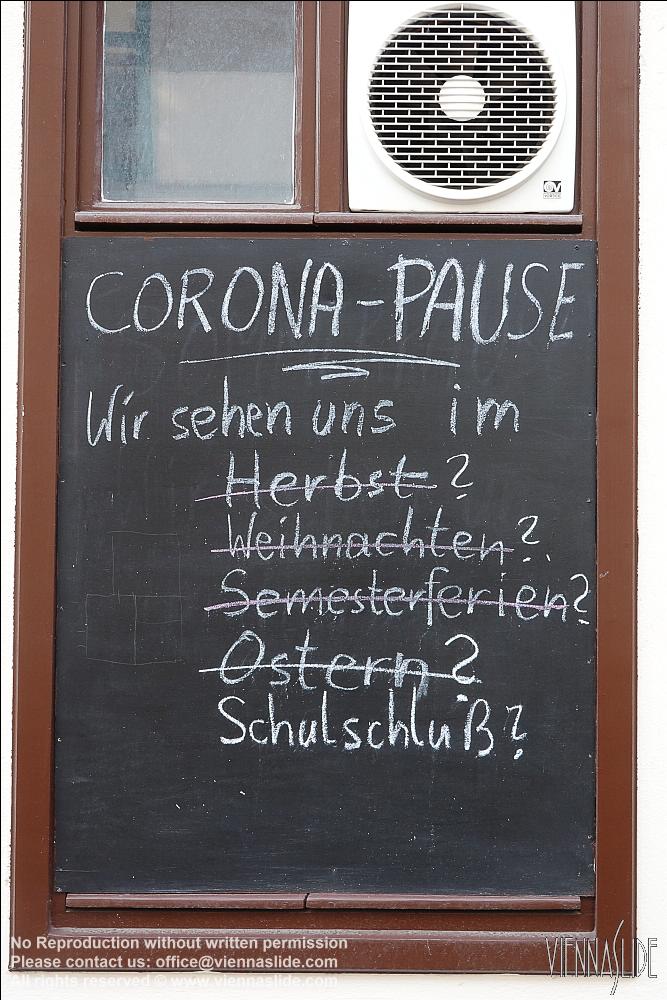 CORONA-PAUSE
Wir sehen uns im
Herbst?
Weihnachten?
Semesterferien?
Ostern?
Schulschluß?
No Reproduction without written permission
Please contact us: office@viennaslide.com
All rights reserved © viennaslide.com
VIENNASLIDE